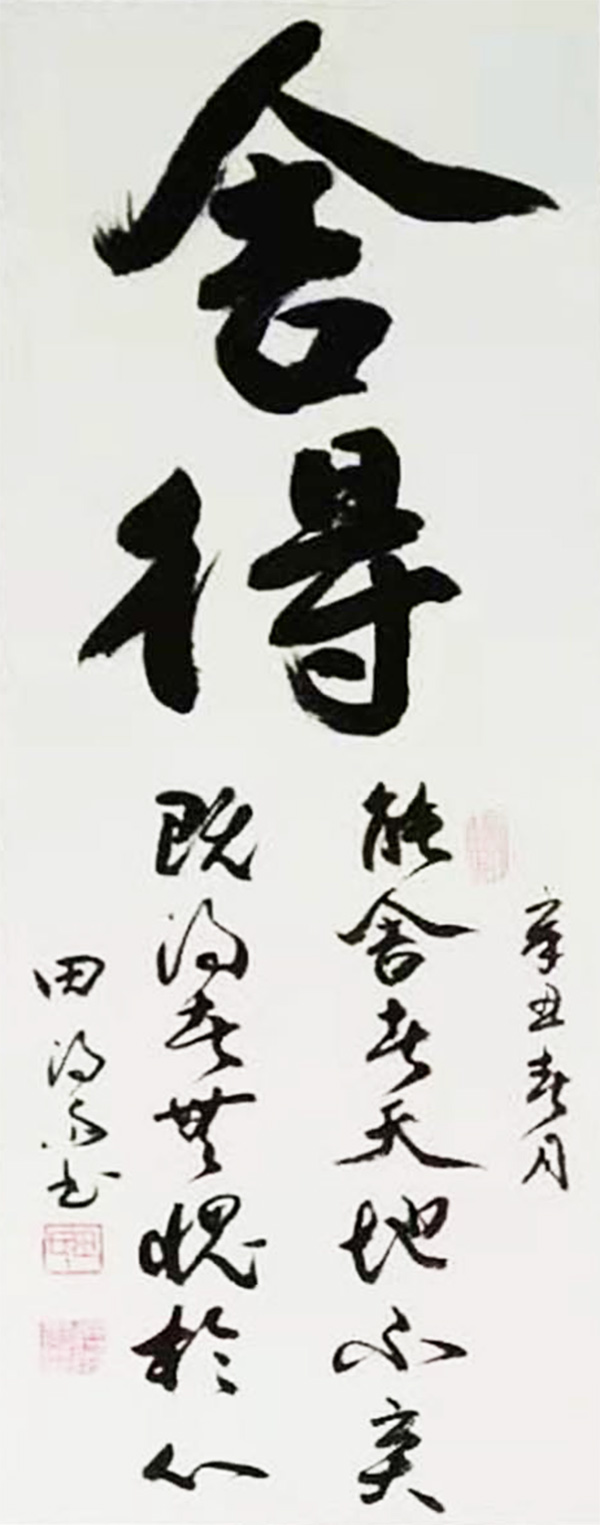 舍得
辛丑春月
能舍者天地不弃
既得者无愧於心
田得
书